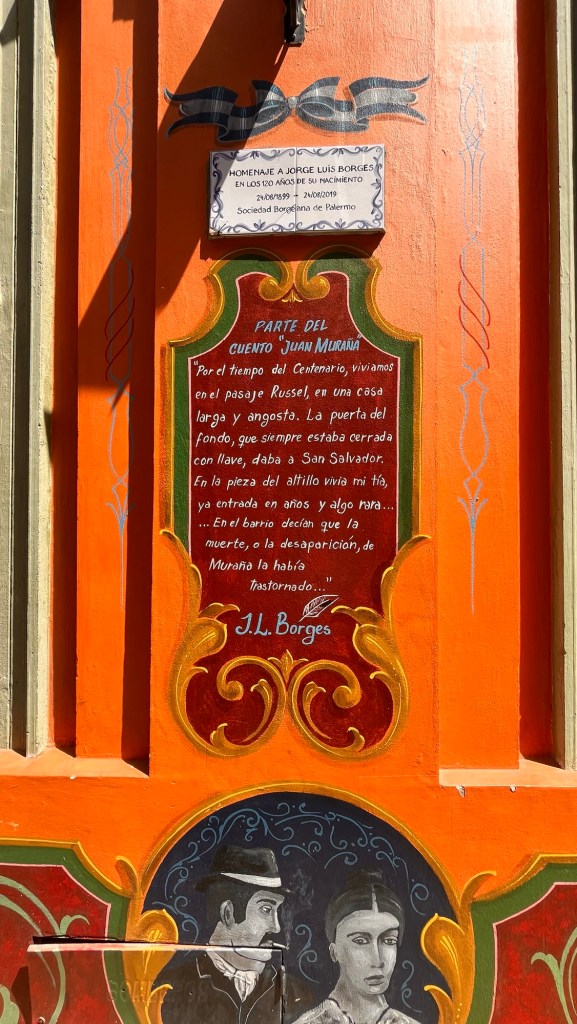 HOMENAJE A JORGE LUIS BORGES
EN LOS 120 AÑOS DE SU NACIMIENTO
24/08/1899 - 24/08/2019
Sociedad Borgeana de Palermo
PARTE DEL
CUENTO "JUAN MURAÑA"
"Por el tiempo del Centenario, vivíamos
en el pasaje Russel, en una casa
larga y angosta. La puerta del
fondo, que siempre estaba cerrada
con llave, daba a San Salvador.
En la pieza del altillo vivía mi tía,
ya entrada en años y algo rara...
... En el barrio decían que la
muerte, o la desaparición, de
Muraña la había
trastornado..."
J.L. Borges